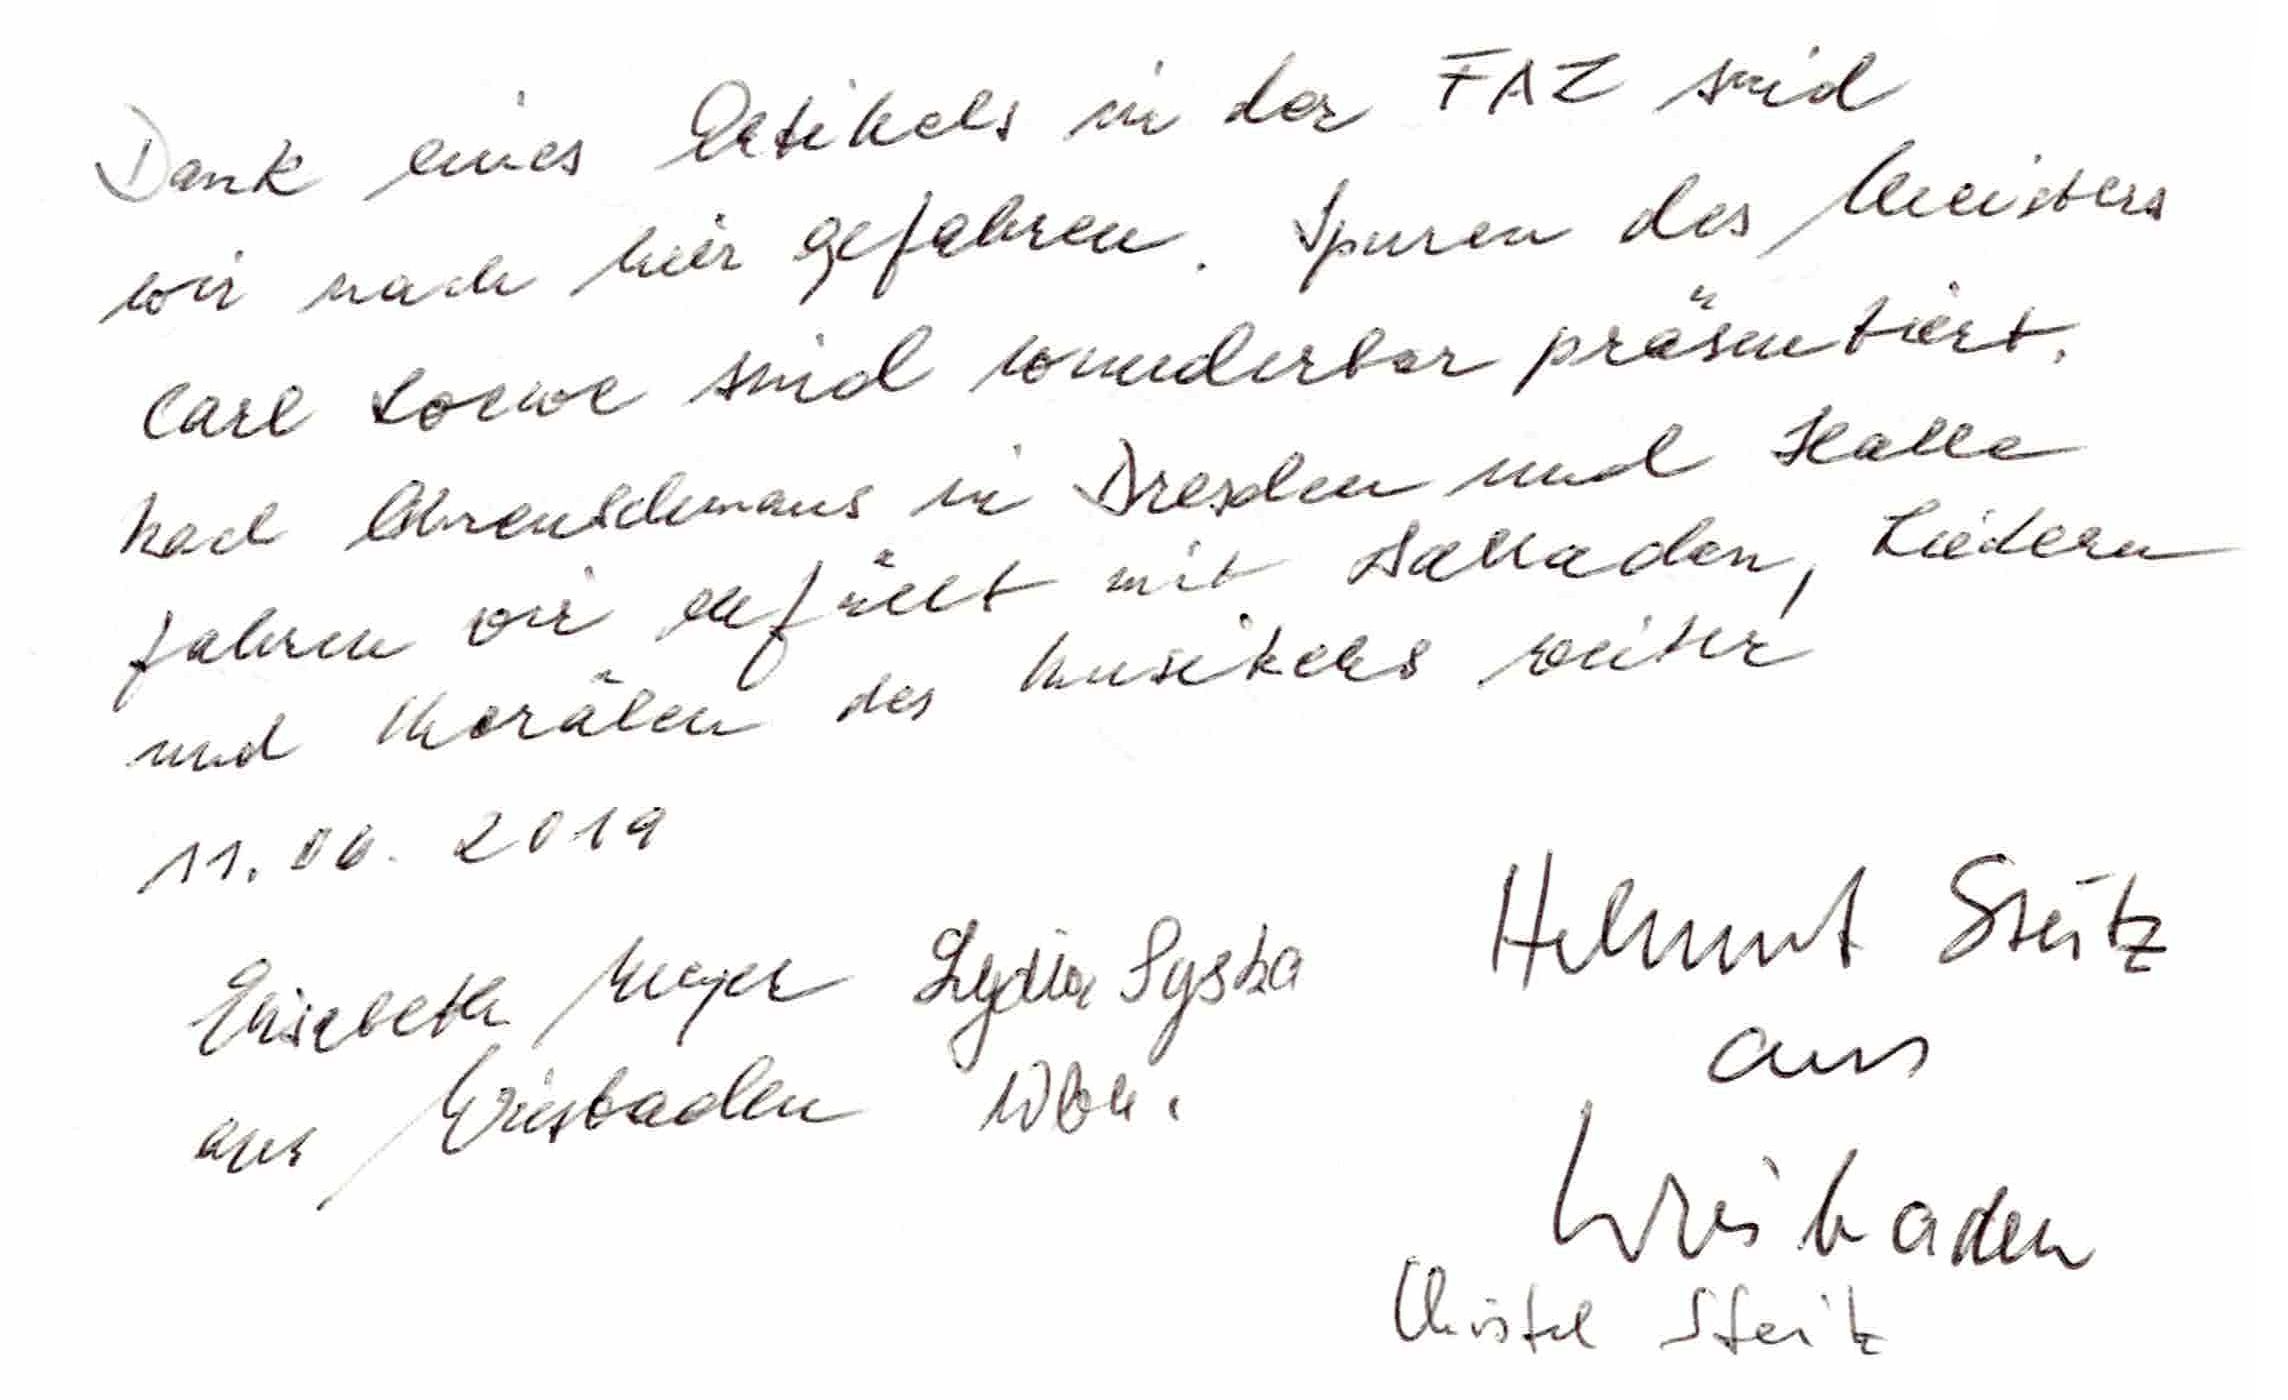 Dank eines Artikels in der FAZ sind
wir nach hier gefahren. Spuren des Meisters
Carl Loewe sind wunderbar präsentiert.
Nach Ohrenschmaus in Dresden und Halle
fahren wir erfüllt mit Balladen, Liedern
und Chorälen des Musikers weiter
11.06.2019
Elisabeth Meyer Lydia Syska
aus Wiesbaden Wbn.
Helmut Steitz
aus
Wiesbaden
Christel Steitz